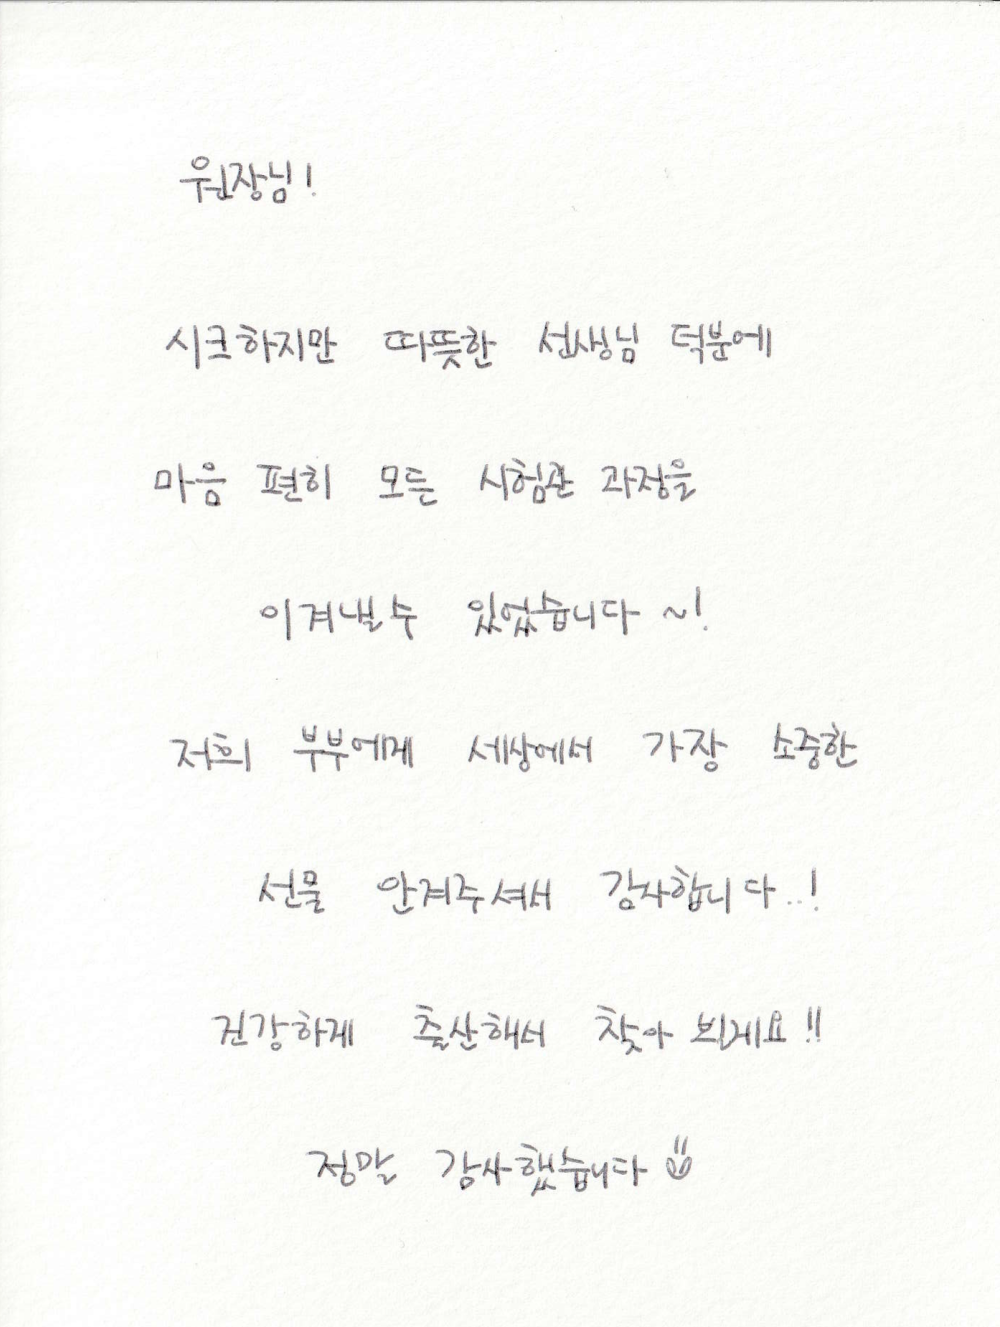 원장님!
시크하지만 따뜻한 선생님 덕분에
마음 편히 모든 시험관 과정을
이겨낼수 있었습니다~!
저희 부부에게 세상에서 가장 소중한
선물 안겨주셔서 감사합니다..!
건강하게 출산해서 찾아 뵐게요!!
정말 감사했습니다